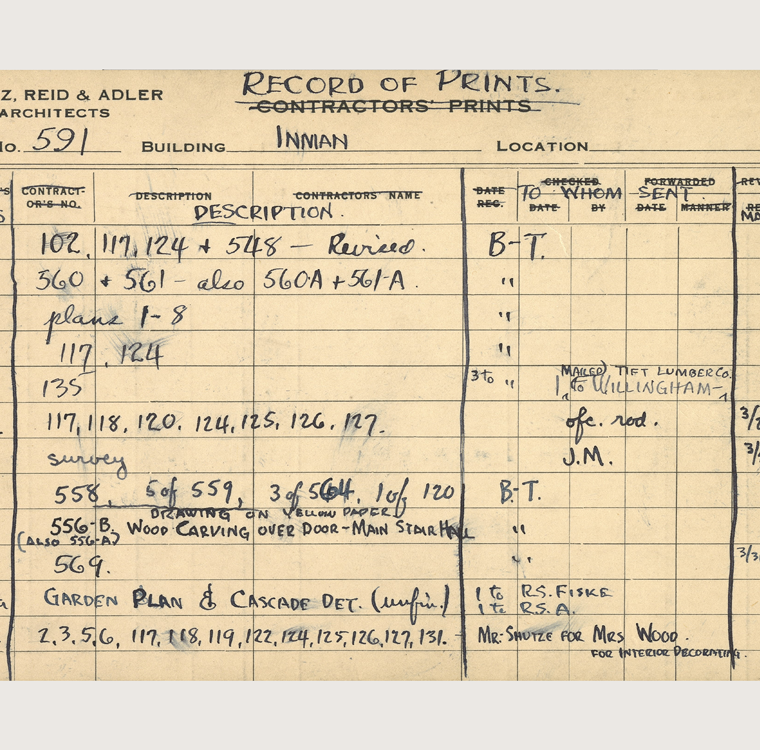 Z, REID & ADLER
ARCHITECTS
RECORD OF PRINTS.
CONTRACTORS' PRINTS
No. 591 BUILDING INMAN LOCATION
CONTRACT-OR'S NO. DESCRIPTION CONTRACTORS NAME DATE REC. CHECKED DATE BY FORWARDED DATE MANNER
DESCRIPTION. TO WHOM SENT
102, 117, 124 + 548 — Revised. B-T.
560 + 561 - also 560A + 561-A. "
plans 1-8 "
117, 124 "
135 3 to " 1 to WILLINGHAM-
MAILED) TIFT LUMBER CO.
117, 118, 120, 124, 125, 126, 127. ofc. rod. 3/
survey J.M. 3/
558, 5 of 559, 3 of 564, 1 of 120 B-T.
DRAWING ON YELLOW PAPER
556-B. WOOD CARVING OVER DOOR - MAIN STAIR HALL "
(ALSO 556-A)
569. " 3/3
GARDEN PLAN & CASCADE DET. (unfin.) 1 to R.S. FISKE
1 to R.S.A.
2, 3, 5, 6, 117, 118, 119, 122, 124, 125, 126, 127, 131. MR. SHUTZE FOR MRS WOOD.
FOR INTERIOR DECORATING.